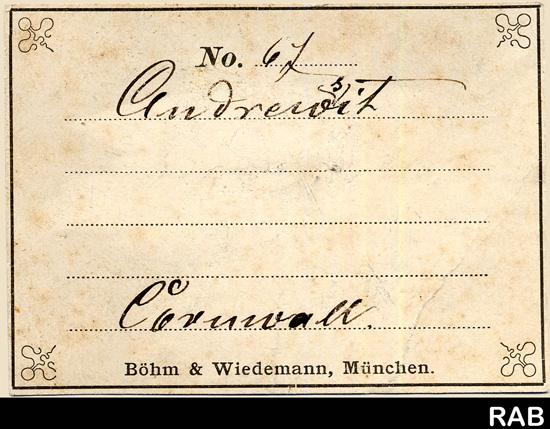 No. 67
Andrewsit
Cornwall.
Böhm & Wiedemann, München.
RAB